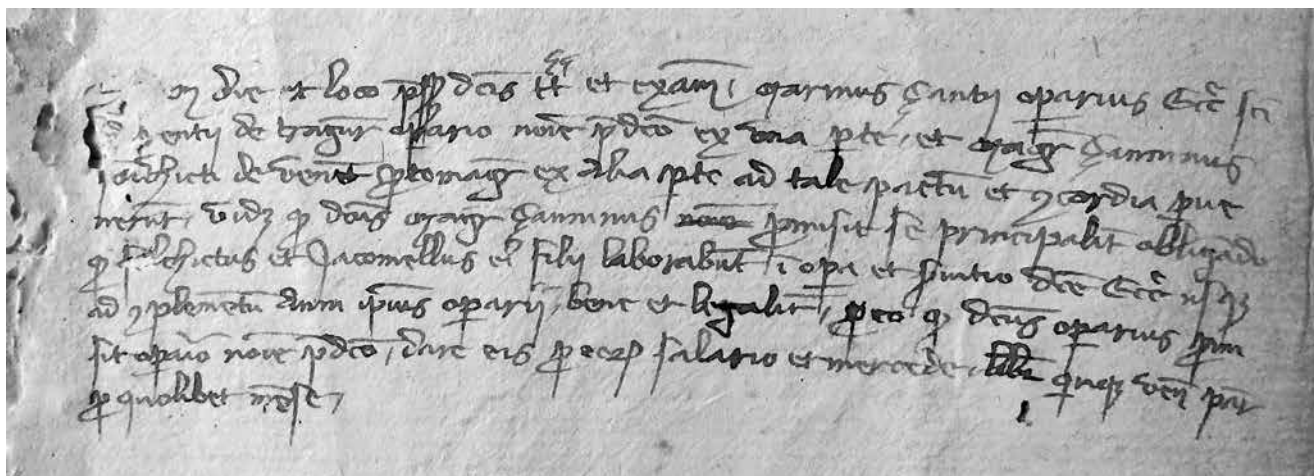 die et loco pss dcis tt et exam, marinus çanti oparius Ecce sci
entii de tragur opario noie pdco ex una pte, et magr çaninus
de venet ptomagr ex alia pte ad tale pactu et ɔcordia pue
nerut, vidz q dcus magr çaninus pmisit se principalit obligado
q et Jacomellus ei filii laborabut i opa et svitio dce Ecce usqz
ad ɔplementu anni ipius oparii, bene et legalit, p eo q dcus oparius pmi
sit opaio noie pdco, dare eis p eor salario et mercede, libr quiqz ven par
p quolibet mese,